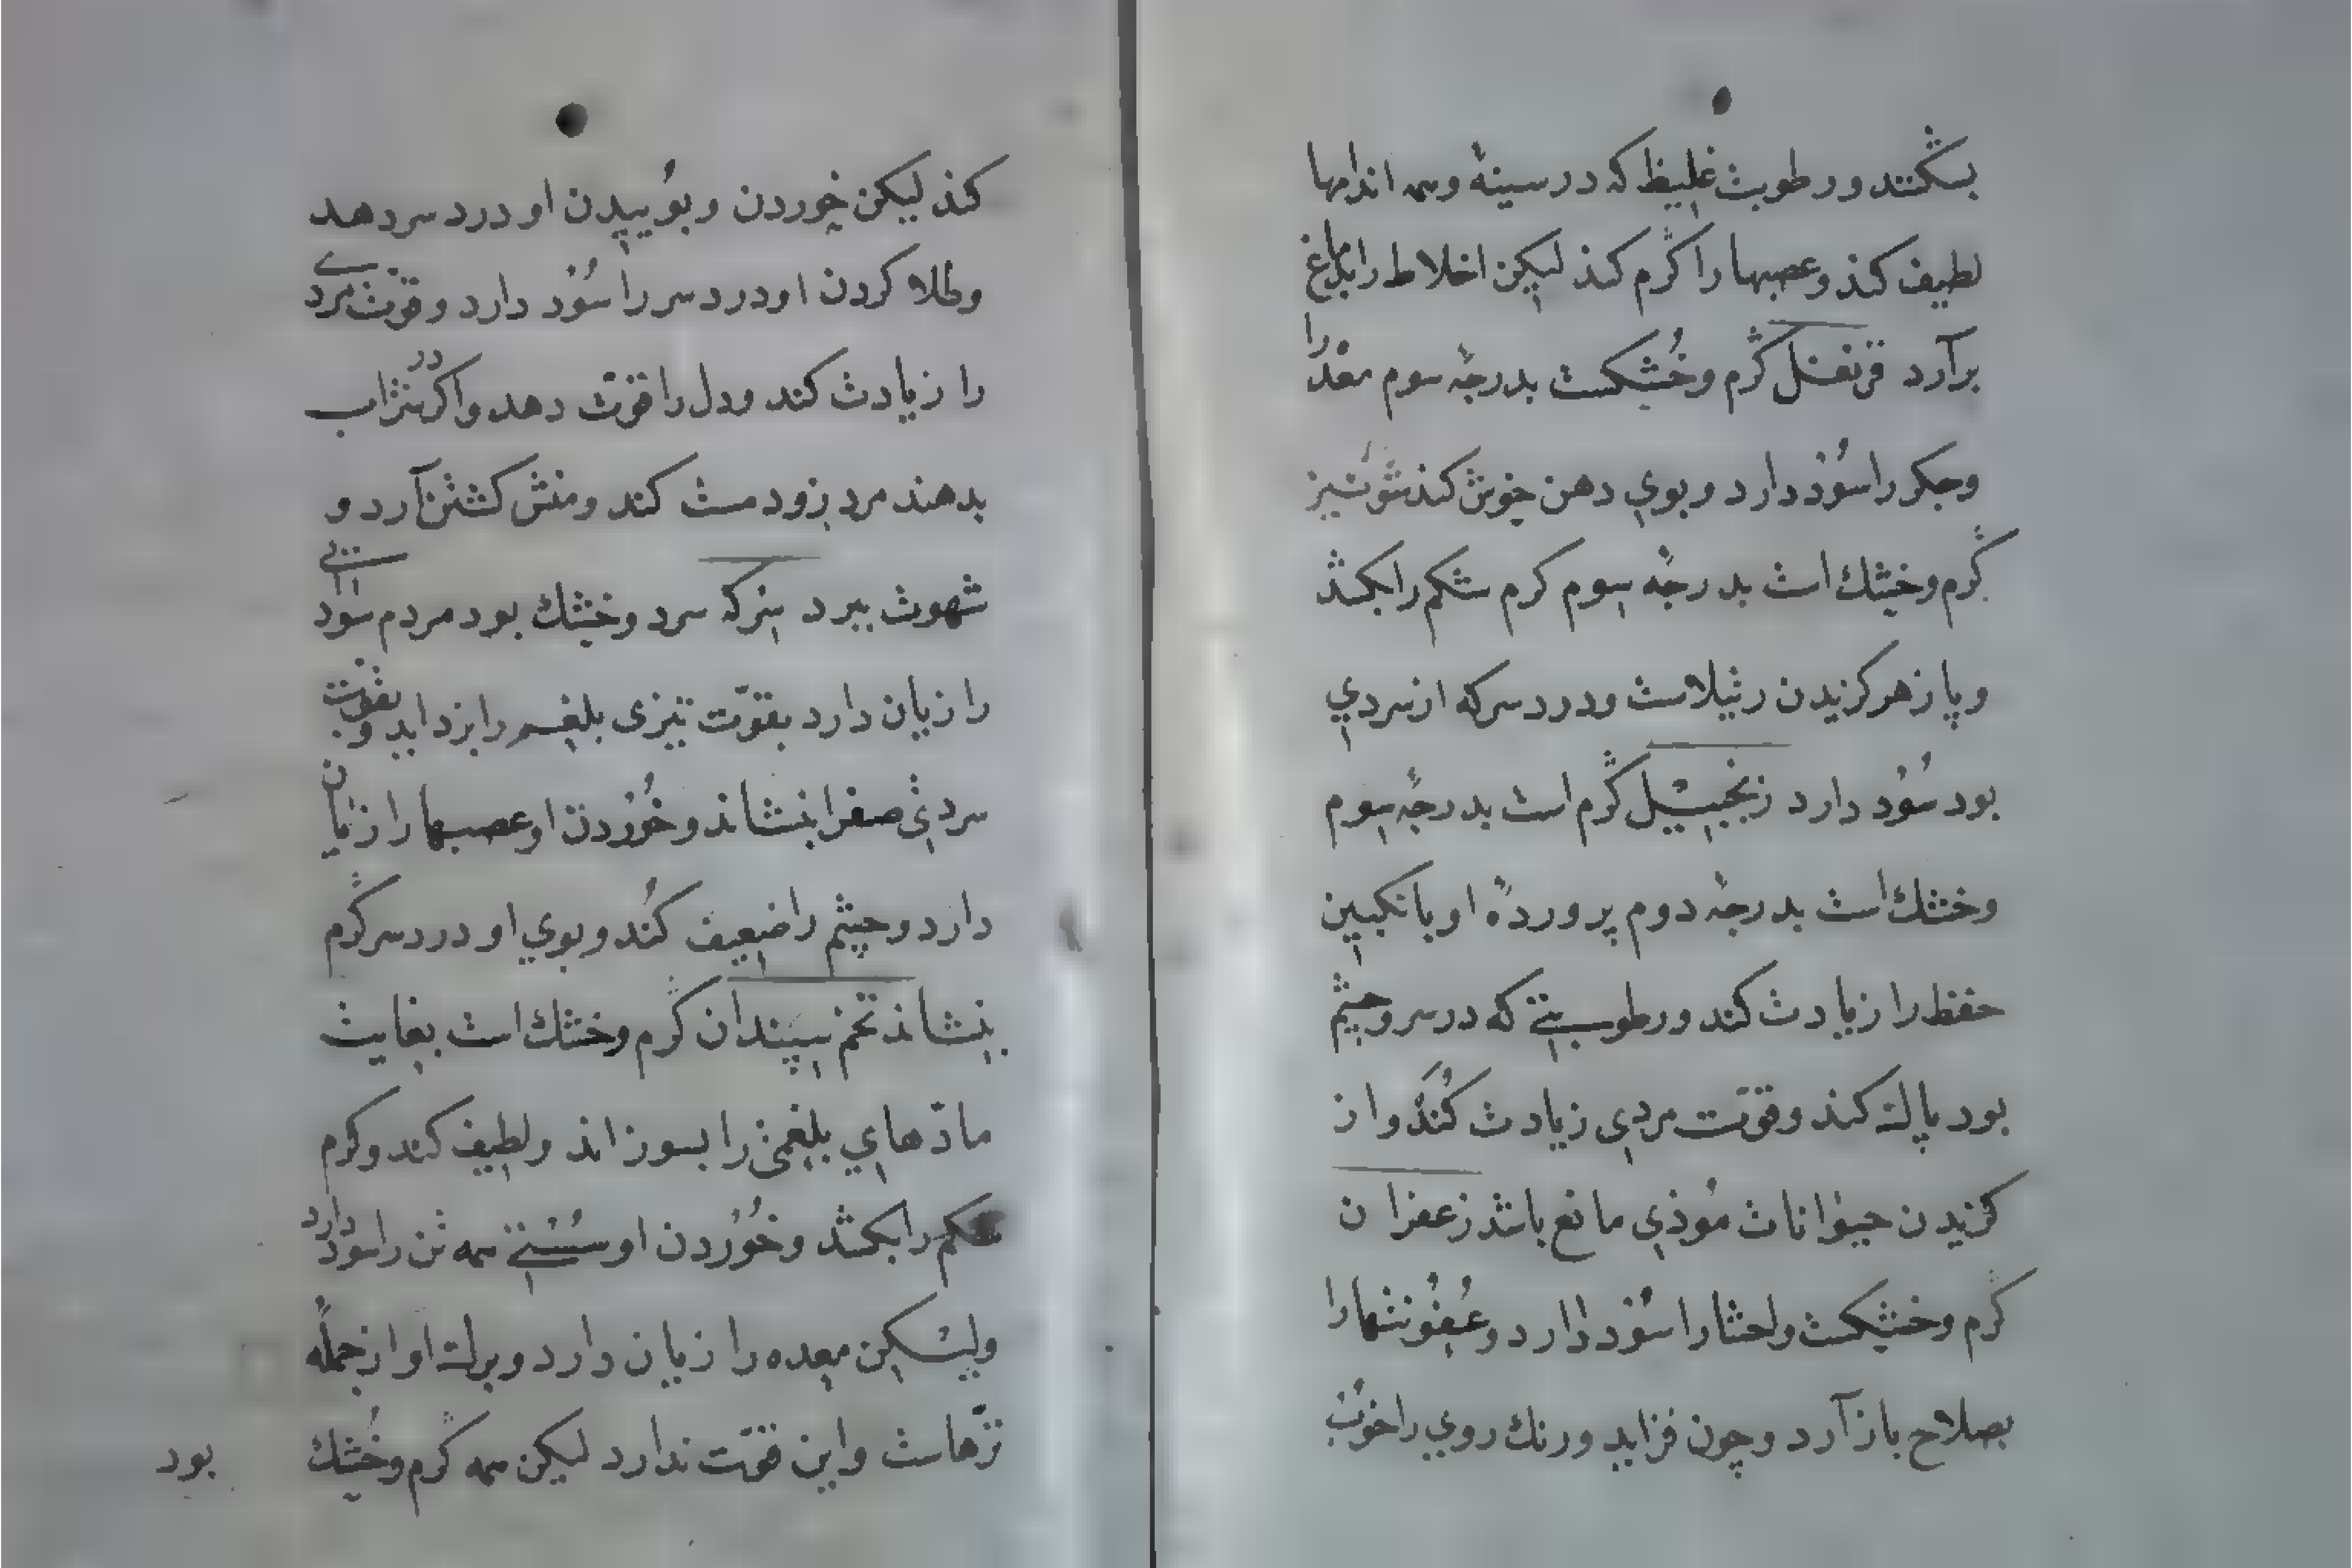 بشکند و رطوبت غلیظ که در سینه و همه اندامها
لطیف کند و عصبها را گرم کند لیکن اخلاط را بدماغ
برآرد قرنفل گرم و خشکست بدرجه سوم معده را
وجکر را سود دارد و بوي دهن خوش کند شونیز
گرم و خشك است بدرجه سوم کرم شکم را بکشد
و پازهر کزیدن رتیلاست و درد سر که از سردي
بود سود دارد زنجبیل گرم است بدرجه سوم
و خشك است بدرجه دوم پرورده او بانکبین
حفظ را زیادت کند و رطوبتي که در سر و چشم
بود پاك کند و قوّت مردي زیادت کند و از
کزیدن حیوانات موذي مانع باشد زعفران
گرم و خشکست و احشا را سود دارد و عفونتها را
بصلاح باز آرد و چون فزاید و رنك روي را خوب
کند لیکن خوردن و بوییدن او درد سر دهد
و طلا کردن او درد سر را سود دارد و قوت مردي
را زیادت کند و دل را قوّت دهد و اکر در شراب
بدهند مرد زود مست کند و منش کشتن آرد و
شهوت ببرد سرکه سرد و خشك بود مردم سودائي
را زیان دارد بقوّت تیزی بلغم را بزداید و بقوّت
سردي صفرا بنشاند و خوردن او عصبها را زیان
دارد و چشم را ضعیف کند و بوي او درد سر گرم
بنشاند تخم سپندان گرم و خشك است بغایت
مادّهاي بلغمی را بسوزاند و لطیف کند و کرم
شکم را بکشد و خوردن او سستي همه تن را سود دارد
ولیکن معده را زیان دارد و برك او از جمله
ترّهاست و این قوّت ندارد لیکن همه گرم و خشك
بود